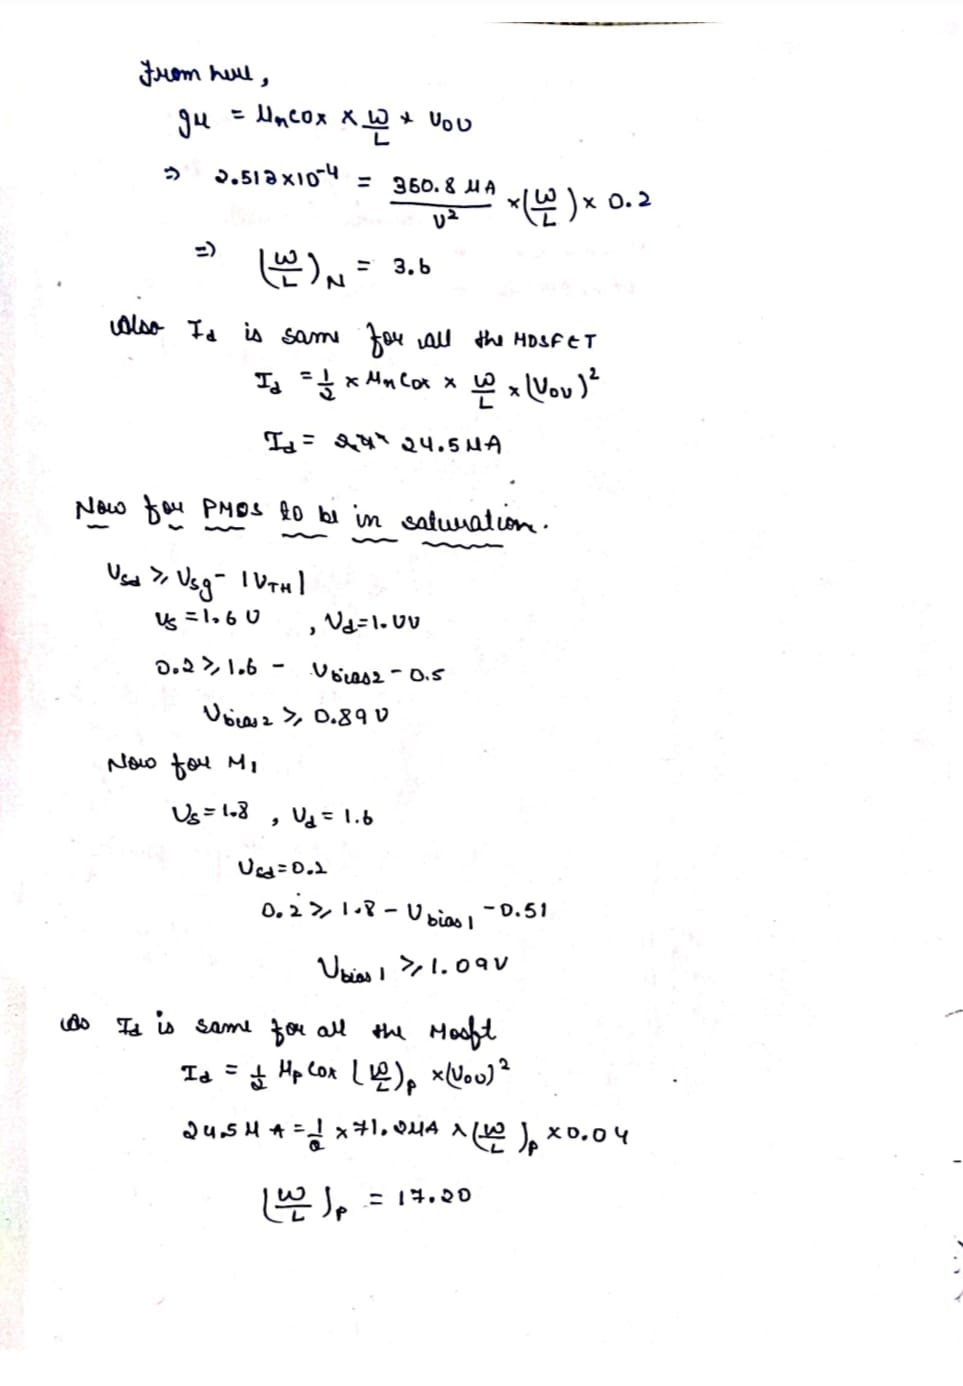 From here,
gm = μnCox × W/L × VOV
⇒ 2.512×10⁻⁴ = 350.8 μA/V² × (W/L) × 0.2
⇒ (W/L)N = 3.6
Also Id is same for all the MOSFET
Id = 1/2 × μnCox × W/L × (VOV)²
Id = 24.5 μA
Now for PMOS to be in saturation.
Vsd ≥ Vsg - |VTH|
Vs = 1.6 V , Vd = 1.4V
0.2 ≥ 1.6 - Vbias2 - 0.5
Vbias2 ≥ 0.89 V
Now for M1
Vs = 1.8 , Vd = 1.6
Vsd = 0.2
0.2 ≥ 1.8 - Vbias1 - 0.51
Vbias1 ≥ 1.09V
As Id is same for all the Mosfet
Id = 1/2 μpCox (W/L)p × (VOV)²
24.5 μA = 1/2 × 71.2μA × (W/L)p × 0.04
(W/L)p = 17.20